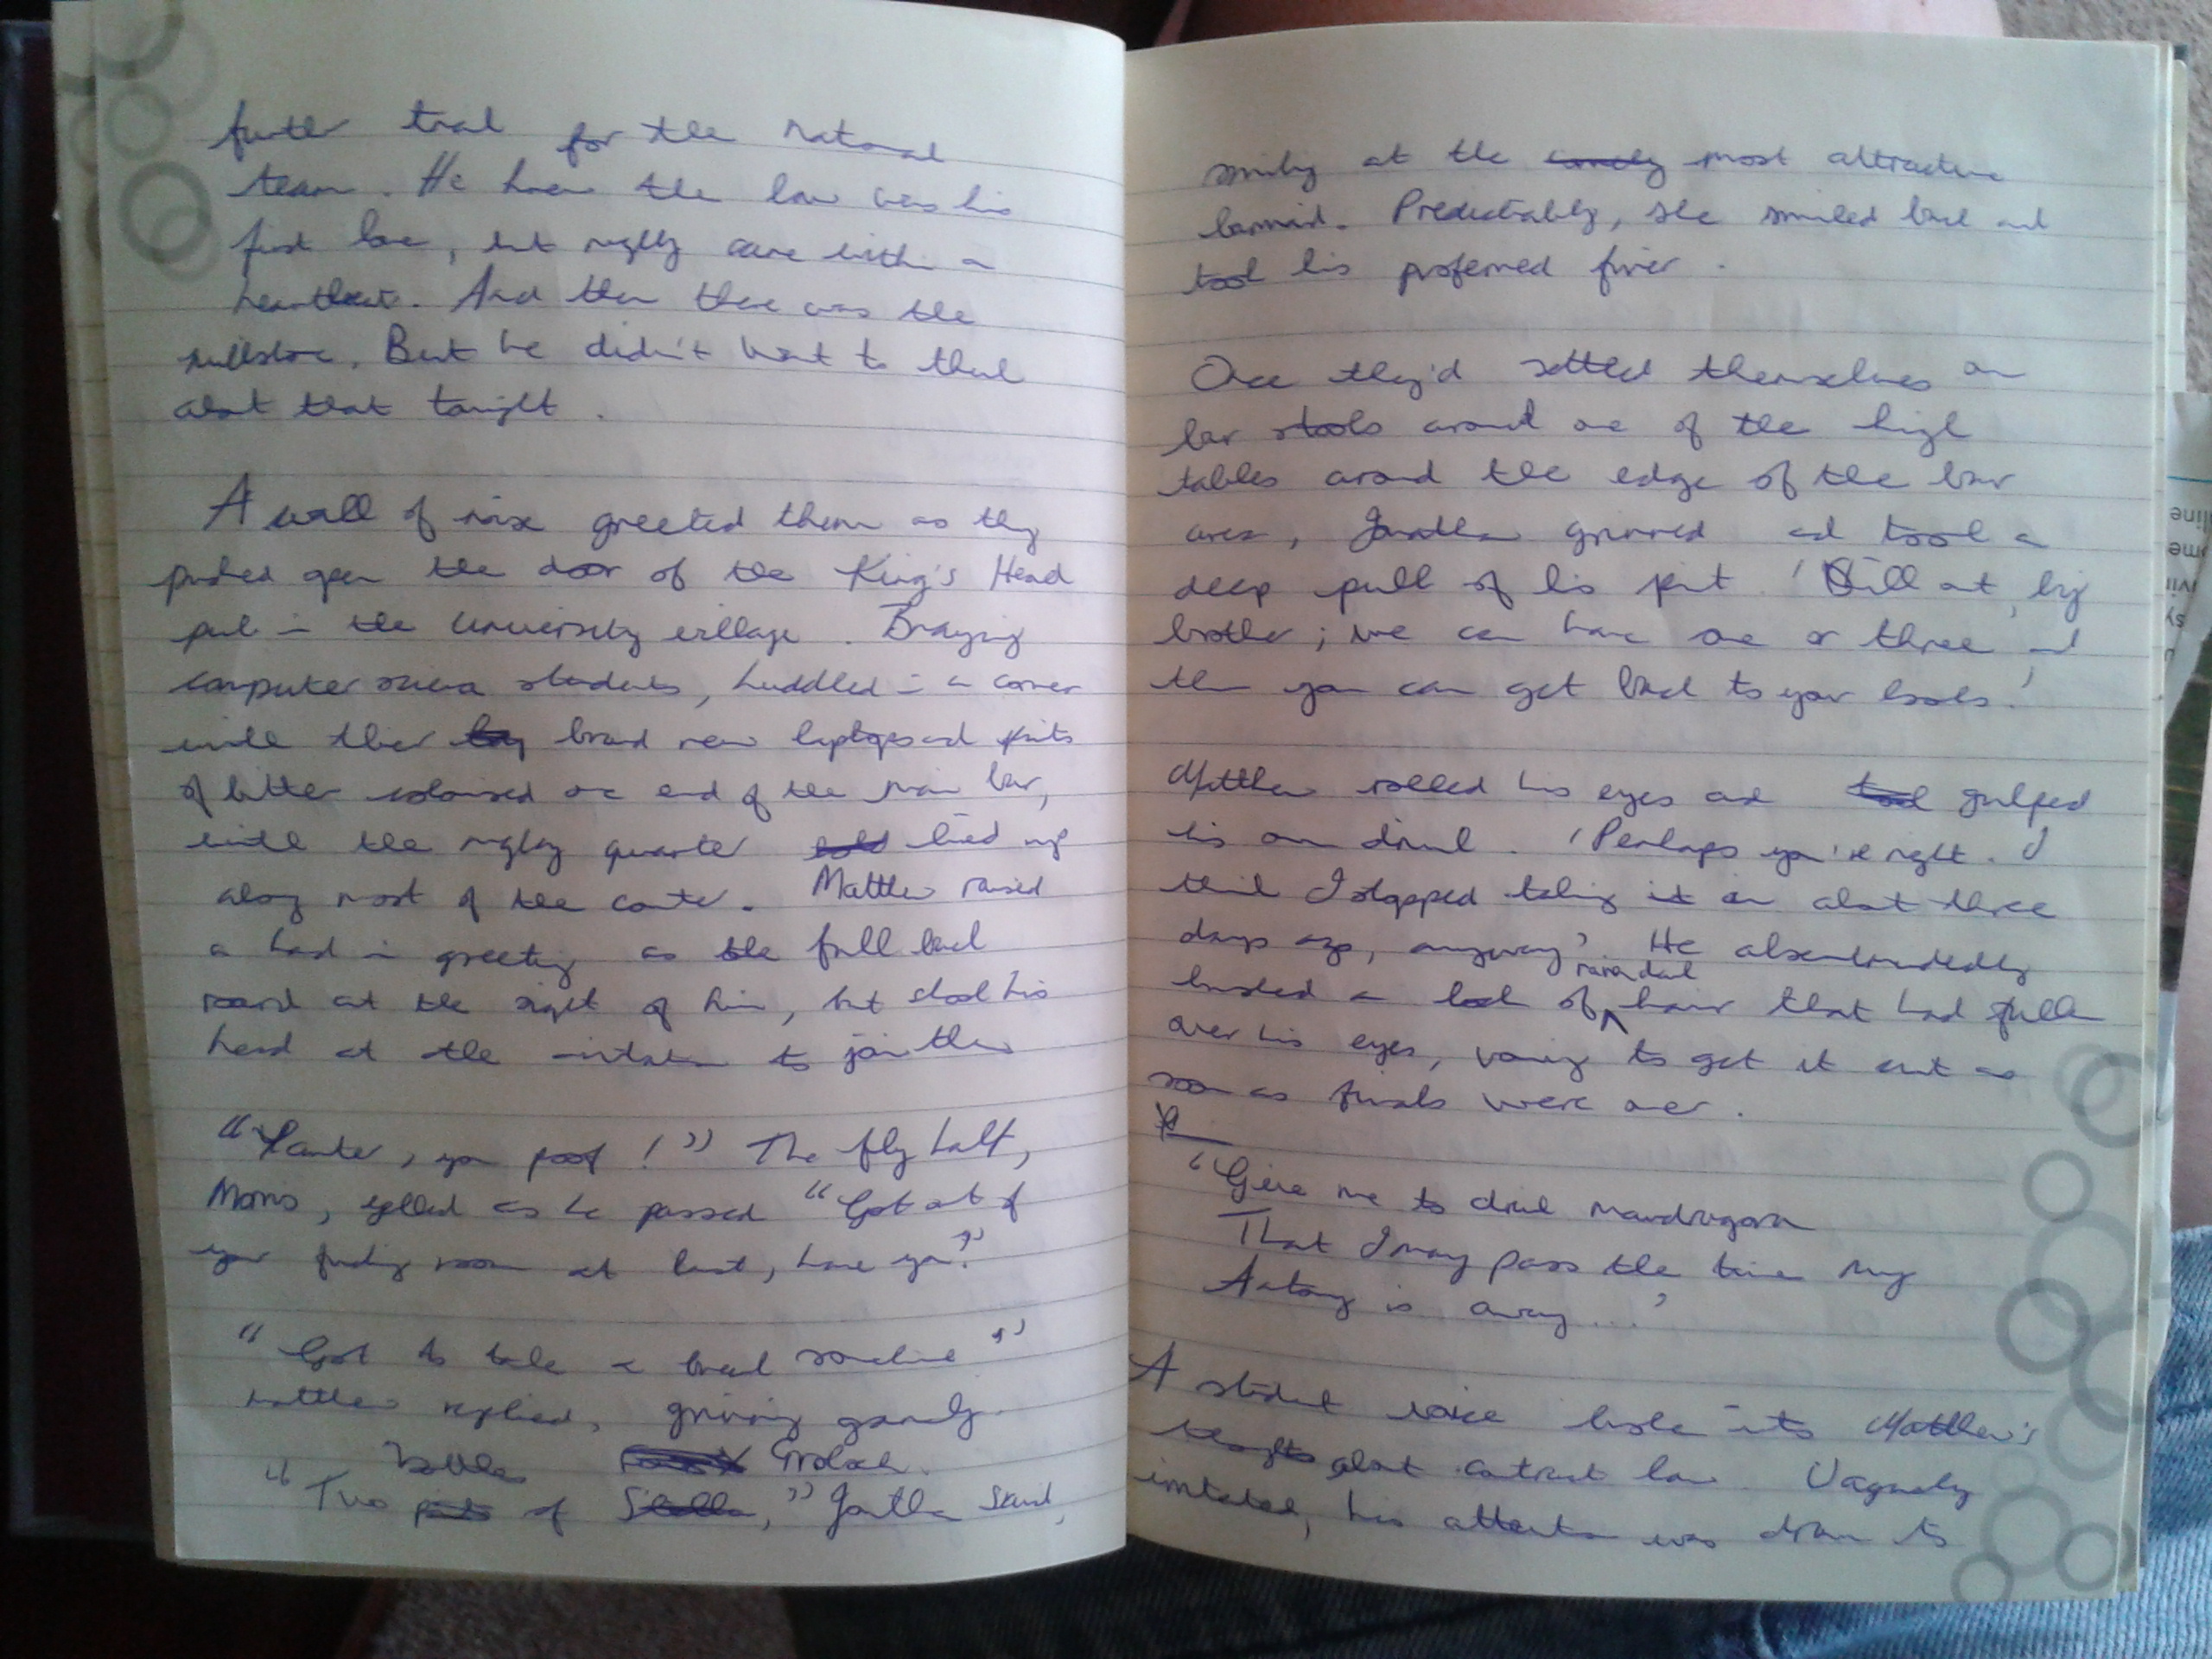 further trial for the national
team. He knew the law was his
first love, but rugby came within a
heartbeat. And then there was the
millstone. But he didn't want to think
about that tonight.
A wall of noise greeted them as they
pushed open the door of the King's Head
pub in the University village. Braying
computer science students, huddled in a corner
with thier brand new laptops and pints
of bitter colonised one end of the main bar,
while the rugby quarter lined up
along most of the counter. Matthew raised
a hand in greeting as the full back
roared at the sight of him, but shook his
head at the invitation to join them
you poof!" The fly half,
Morris, yelled as he passed "Got out of
your fucking room at last, have you?"
"Got to take a break sometime"
Matthew replied, grinning
bottles Grolsch.
"Two pints of Stella," Jonathan said,
smiling at the most attractive
barmaid. Predictably, she smiled back and
took his proferred fiver.
Once they'd settled themselves on
bar stools around one of the high
tables around the edge of the bar
area, Jonathan grinned and took a
deep pull of his pint. 'Chill out, big
brother; we can have one or three and
then you can get back to your books.'
Matthew rolled his eyes and took gulped
his own drink. 'Perhaps you're right. I
think I stopped taking it in about three
days ago, anyway'. He absentmindedly
brushed a lock of hair that had fallen
over his eyes, vowing to get it cut as
soon as finals were over.
'Give me to drink mandragora
That I may pass the time my
Antony is away...'
A strident voice broke into Matthew's
thoughts about contract law. Vaguely
irritated, his attention was drawn to